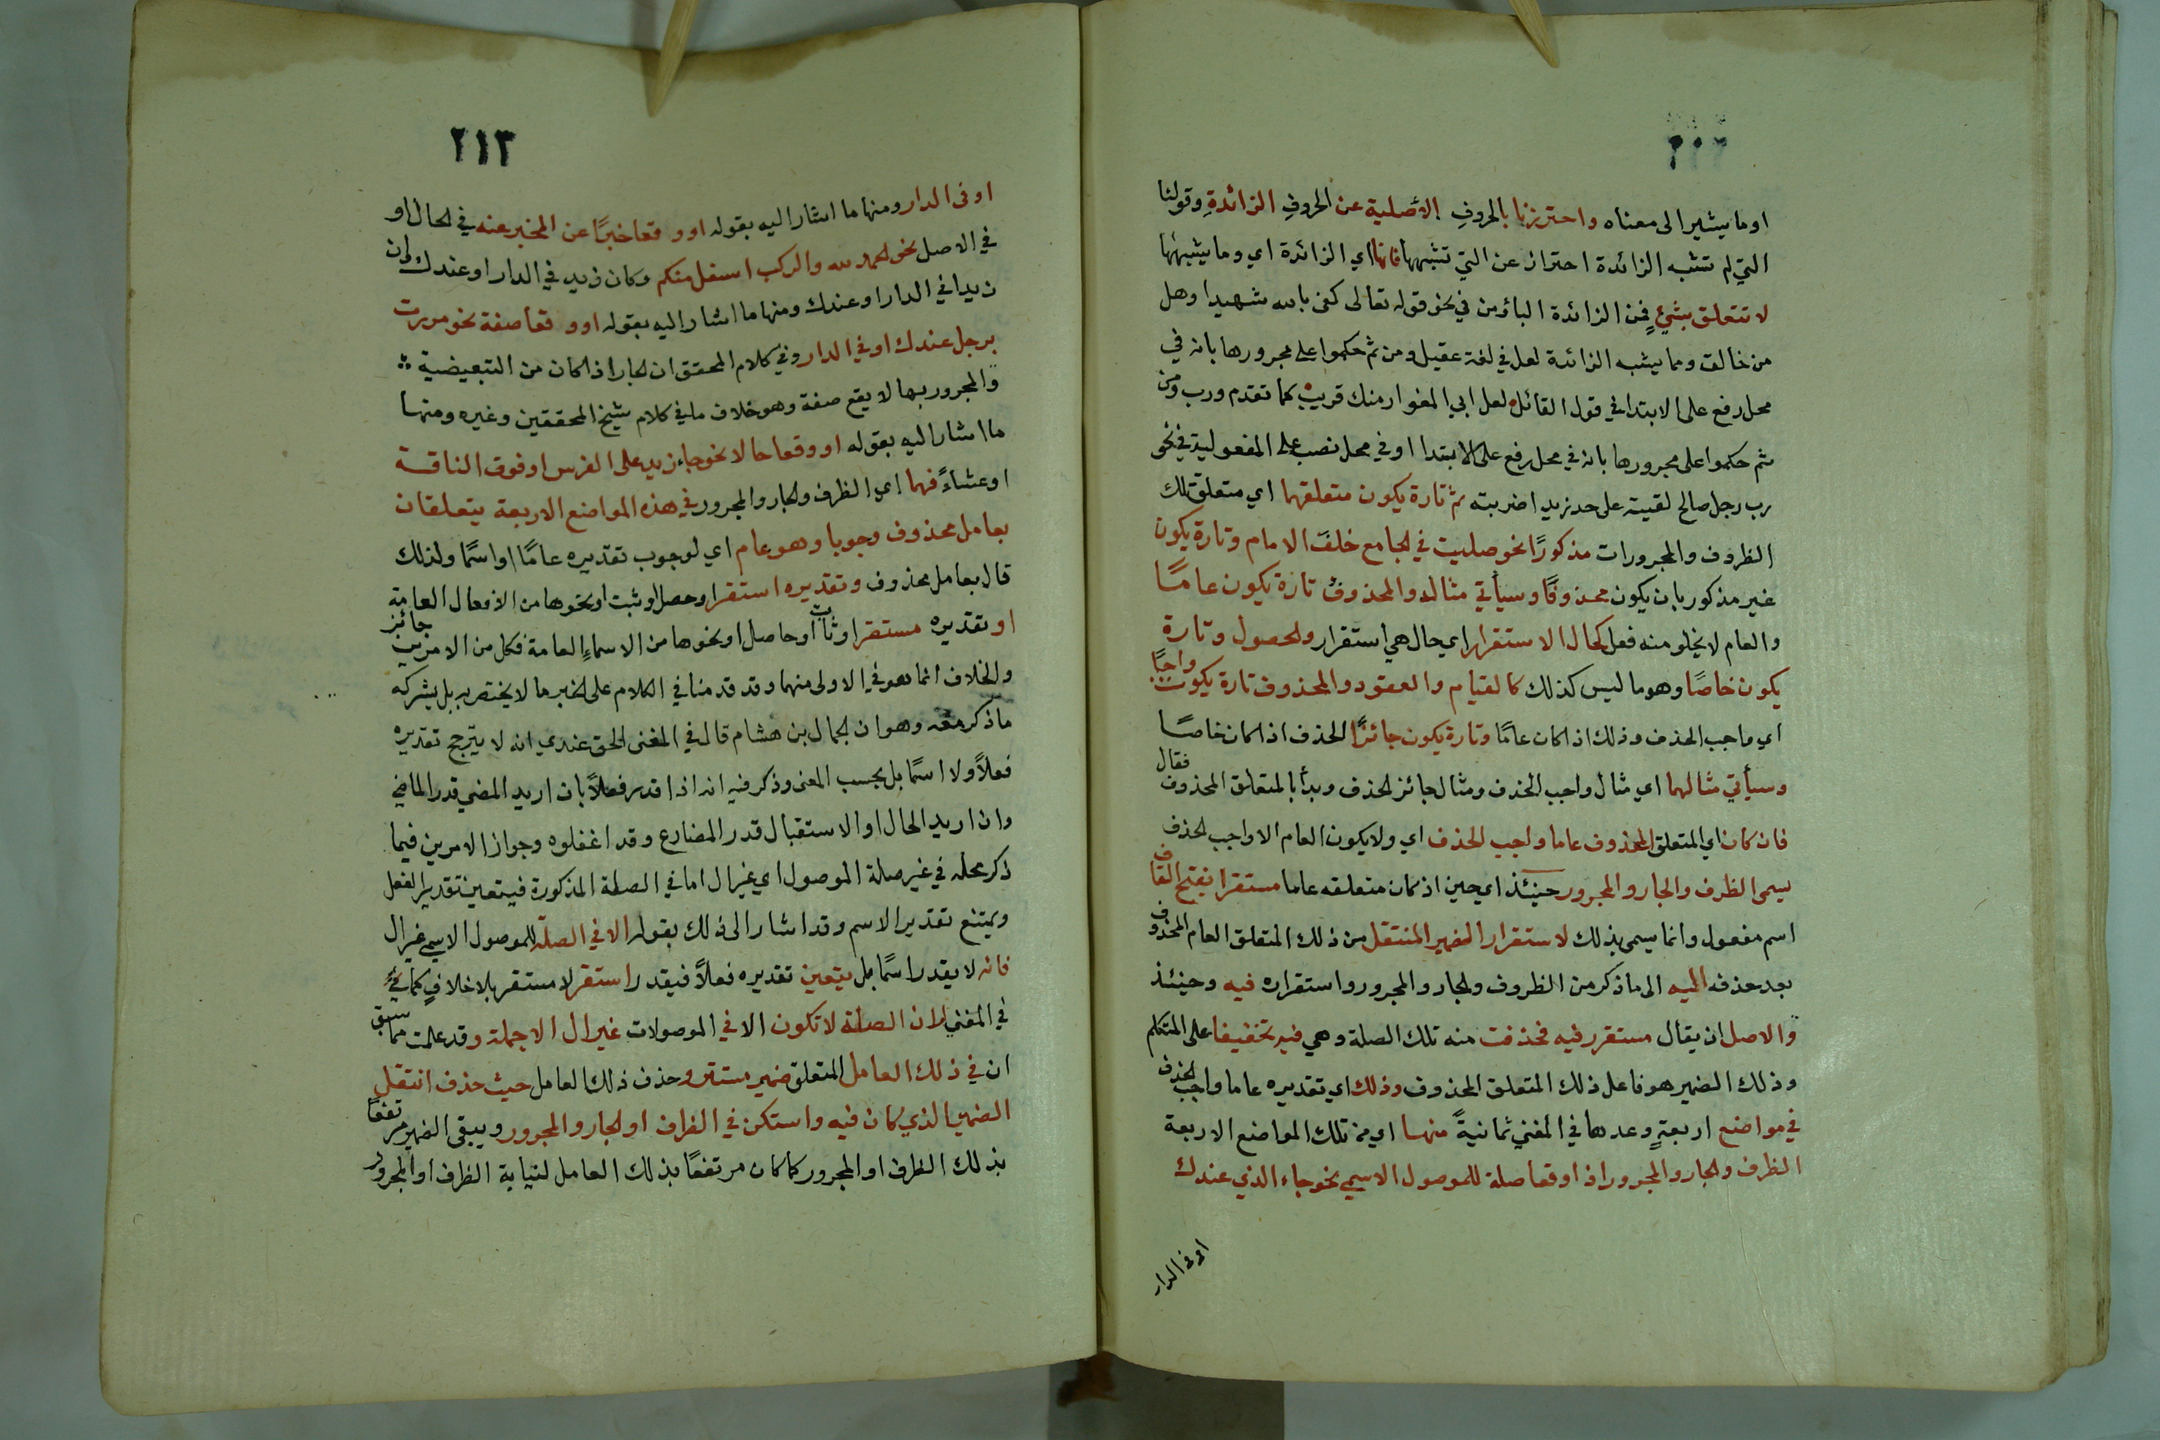 او ما يشير الى معناه واحترزنا بالحروفِ الأصلية عن الحروفِ الزائدةِ وقولنا
التي لم تشبه الزائدة احتراز عن التي تشبهها فانها اي الزائدة اي وما يشبهها
لا تتعلق بشئٍ فمن الزائدة الباؤ من في نحو قوله تعالى كفى بالله شهيدا وهل
من خالق ومما يشبه الزائدة لعل في لغة عقيل ومن ثم حكموا على مجرورها بانه في
محل رفع على الابتداء في قول القائل لعل ابي المغوار منك قريب كما تقدم ورب ومن
ثم حكموا على مجرورها بانه في محل رفع على الابتدا او في محل نصب على المفعولية في نحو
رب رجل صالح لقيته على حد زيدا ضربته ثم تارة يكون متعلقها اي متعلق تلك
الظروف والمجرورات مذكورًا نحو صليت في الجامع خلف الامام وتارة يكون
غير مذكور بان يكون محذوفًا وسيأتي مثاله والمحذوف تارة يكون عامًا
والعام لا يخلو منه فعل كحال الاستقرار اي حال هي استقرار والحصول وتارة
يكون خاصًا وهو ما ليس كذلك كالقيام والعقود والمحذوف تارة يكون واجبًا
اي واجب الحذف وذلك اذا كان عامًا وتارة يكون جائزًا الحذف اذا كان خاصًا
وسيأتي مثالهما اي مثال واجب الحذف ومثال جائز الحذف وبدأ بالمتعلق المحذوف فقال
فان كان اي المتعلق المحذوف عاما واجب الحذف اي ولا يكون العام الا واجب الحذف
يسمى الظرف والجار والمجرور حينئذ اي حين اذ كان متعلقه عاما مستقرا بفتح القاف
اسم مفعول وانما يسمى بذلك لاستقرار الضمير المنتقل من ذلك المتعلق العام المحذوف
بعد حذفه اليه الى ما ذكر من الظروف والجار والمجرور واستقراره فيه وحينئذ
والاصل ان يقال مستقر فيه فحذفت منه تلك الصلة وهي فيه تخفيفا على المتكلم
وذلك الضمير هو فاعل ذلك المتعلق المحذوف وذلك اي تقديره عاما واجب الحذف
في مواضع اربعةٍ وعدها في المغني ثمانيةً منها اي من تلك المواضع الاربعة
الظرف والجار والمجرور اذا وقعا صلة للموصول الاسمي نحو جاء الذي عندك
او في الدار
٢١٣
او في الدار ومنها ما اشار اليه بقوله او وقعا خبرًا عن المخبر عنه في الحال او
في الاصل نحو الحمد لله والركب اسفل منكم وكان زيد في الدار او عندك وان
زيدا في الدار او عندك ومنها ما اشار اليه بقوله او وقعا صفة نحو مررت
برجل عندك او في الدار وفي كلام المحقق ان الجار اذا كان من التبعيضية
والمجرور بها لا يقع صفة وهو خلاف ما في كلام شيخ المحققين وغيره ومنها
ما اشار اليه بقوله او وقعا حالا نحو جاء زيد على الفرس او فوق الناقة
او عشاءً فهما اي الظرف والجار والمجرور في هذه المواضع الاربعة يتعلقان
بعامل محذوف وجوبا وهو عام اي لوجوب تقديره عامًا او اسمًا ولذلك
قال بعامل محذوف وتقديره استقر او حصل او ثبت او نحوها من الافعال العامة
او تقديره مستقر او ثابت او حاصل او نحوها من الاسماء العامة فكل من الامرين جائز
والخلاف انما هو في الاولى منهما وقد قدمنا في الكلام على الخبر ما لا يختص به بل يشركه
ما ذكر معه وهو ان الجمال بن هشام قال في المغنى الحق عندي انه لا يترجح تقديره
فعلاً ولا اسمًا بل بحسب المعنى وذكر فيه انه اذا قدر فعلاً بان اريد المضي قدر الماضي
وان اريد الحال او الاستقبال قدر المضارع وقد اغفلوه وجواز الامرين فيما
ذكر محله في غير صلة الموصول اي غير ال اما في الصلة المذكورة فيتعين تقدير الفعل
ويمتنع تقدير الاسم وقد اشار الى ذلك بقوله الا في الصلة للموصول الاسمي غير ال
فانه لا يقدر اسمًا بل يتعين تقديره فعلاً فيقدر استقر لا مستقر بلا خلافٍ كما
في المغني لان الصلة لا تكون الا في الموصولات غير ال الا جملة وقد علمت مما سبق
ان في ذلك العامل المتعلق ضمير مستتر وحذف ذلك العامل حيث حذف انتقل
الضمير الذي كان فيه واستكن في الظرف او الجار والمجرور ويبقى الضمير مرتفعًا
بذلك الظرف او المجرور كما كان مرتفعًا بذلك العامل لنيابة الظرف او المجرور